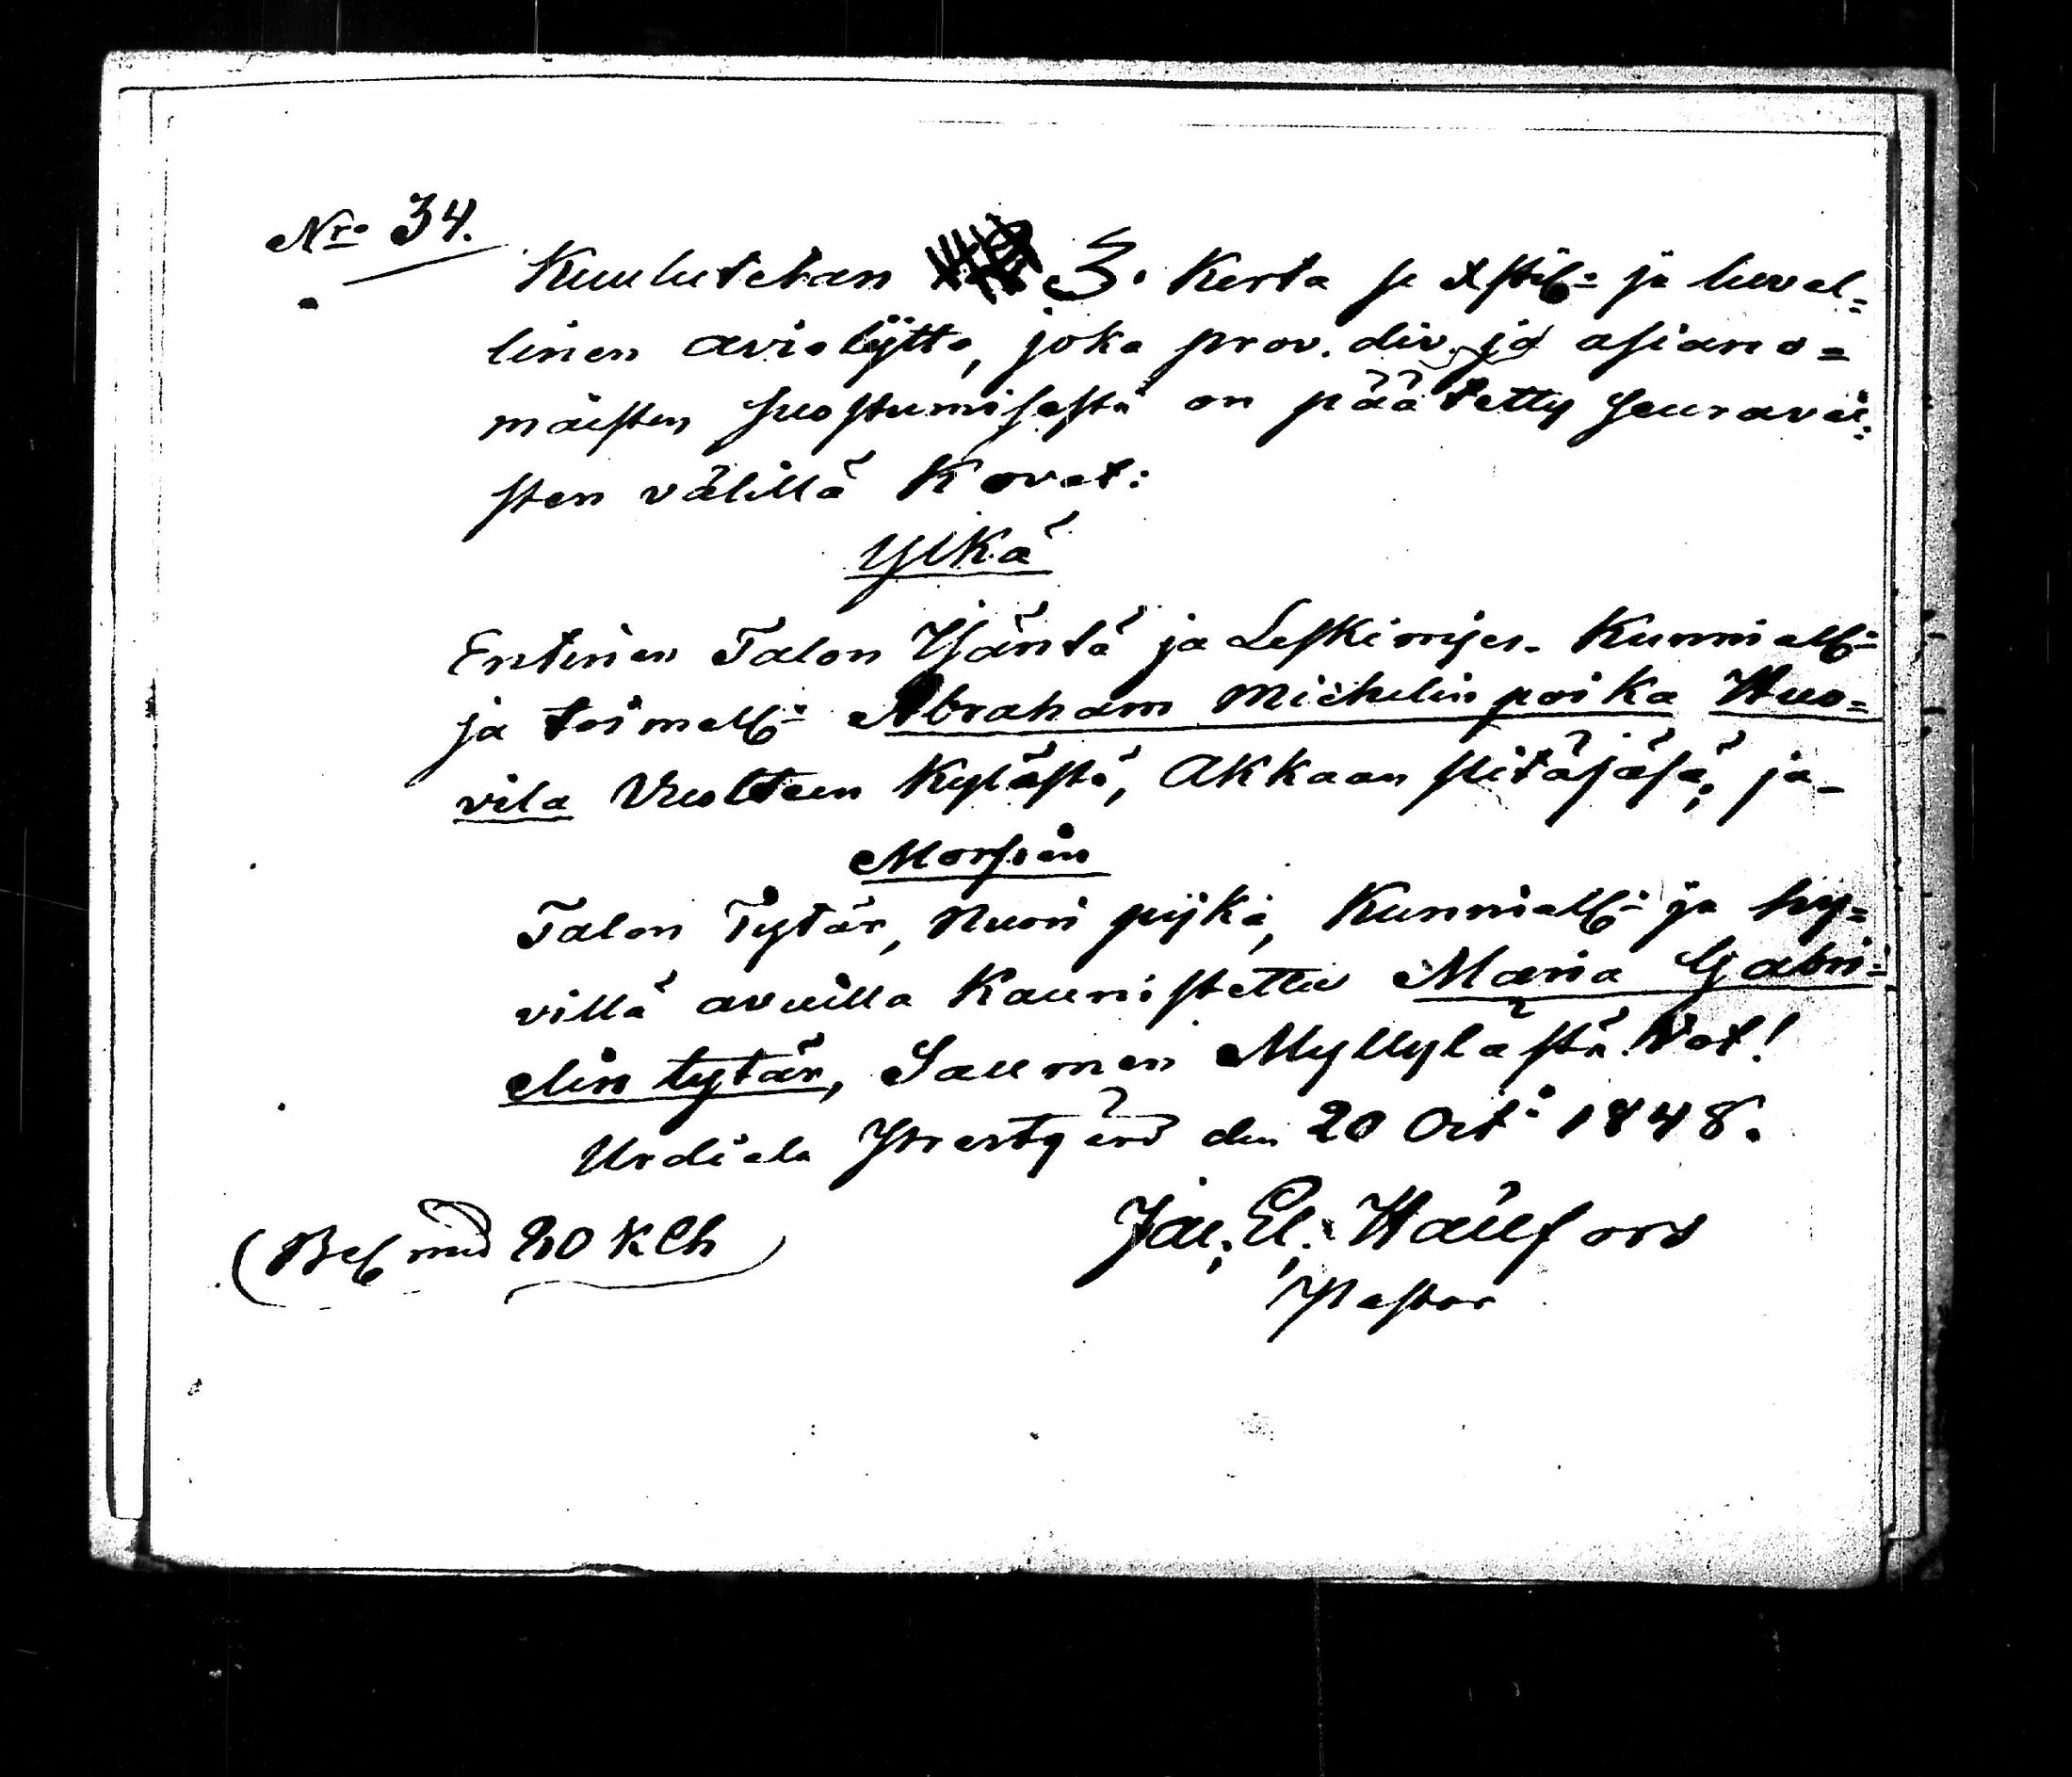 Nro 34.
Kuulutetan 3. Kerta se Xstill: ja luval=
linen aviolijtto, joka prov. div. ja asiano=
maisten suostumisesta on päätetty seuravai=
sten välillä Kovat:
Ylkä
Entinen Talon Isäntä ja Leskimijes. Kunniall:
ja toimell: Abraham Michelin poika Huo=
vila Vuolteen Kylästä, Akkaan pitäjäsä; ja
Morsian
Talon Tytär, Nuori pijka, Kunniall: ja hy=
villä avuilla Kaunistettu Maria Gabri=
elin tytär, Saumen Myllylästä. Vot!
Urdiala Prestgård den 20 Oct: 1848.
(Bef med 20 K Ch)
Jac. El. Haufors
Pastor